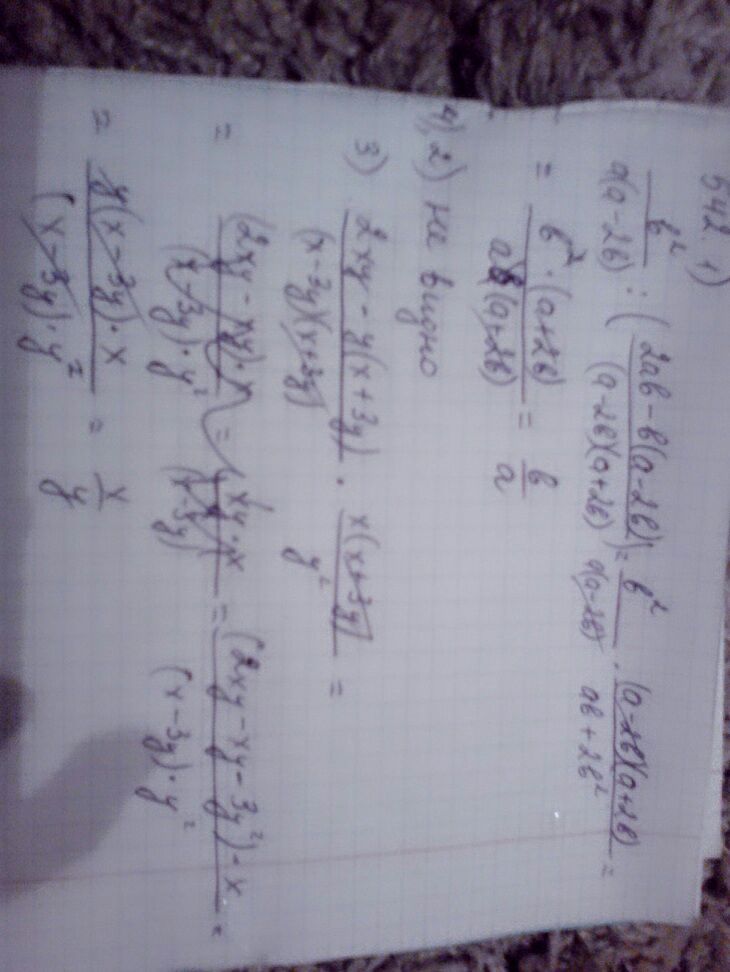 542. 1)
b²/a(a-2b) : (2ab-b(a-2b)/(a-2b)(a+2b)) = b²/a(a-2b) · (a-2b)(a+2b)/ab+2b² =
= b²·(a+2b)/ab(a+2b) = b/a
4), 2) не видно
3) 2xy-y(x+3y)/(x-3y)(x+3y) · x(x+3y)/y² =
= (2xy-xy)·x/(x-3y)·y² = xy·x/(x-3y) = (2xy-xy-3y²)·x/(x-3y)·y² =
= y(x-3y)·x/(x-3y)·y² = x/y